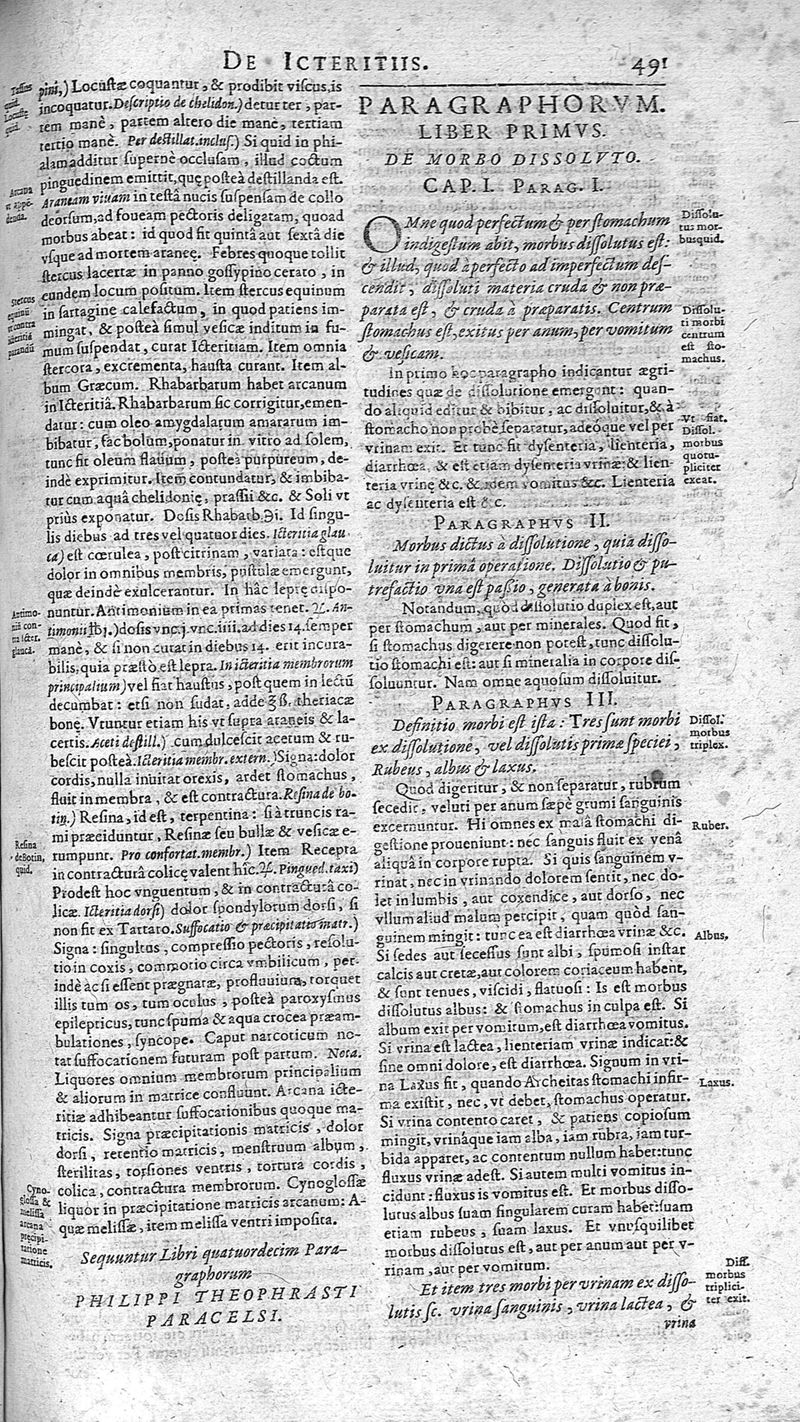 DE ICTERITIIS. 491
pini,) Locustæ coquantur, & prodibit viscus, is
incoquatur. Descriptio de chelidon.) detur ter, par-
tem manè, partem altero die manè, tertiam
tertio manè. Per destillat. inclus.) Si quid in phi-
alam additur supernè occlusam, illud coctum
pinguedinem emittit, quę posteà destillanda est.
Araneam viuam in testâ nucis suspensam de collo
deorsum, ad foueam pectoris deligatam, quoad
morbus abeat: id quod fit quintâ aut sextâ die
vsque ad mortem araneę. Febres quoque tollit
stercus lacertæ in panno gossypino cerato, in
eundem locum positum. Item stercus equinum
in sartagine calefactum, in quod patiens im-
mingat, & posteà simul vesicæ inditum in fu-
mum suspendat, curat Icteritiam. Item omnia
stercora, excrementa, hausta curant. Item al-
bum Græcum. Rhabarbarum habet arcanum
in Icteritiâ. Rhabarbarum sic corrigitur, emen-
datur: cum oleo amygdalarum amararum im-
bibatur, fac bolum, ponatur in vitro ad solem,
tunc fit oleum flauum, posteà purpureum, de-
indè exprimitur. Item contundatur, & imbiba-
tur cum aquâ chelidonię, prassii &c. & Soli vt
priùs exponatur. Dosis Rhabarb. ℈i. Id singu-
lis diebus ad tres vel quatuor dies. Icteritia glau-
ca) est cœrulea, post citrinam, variata: estque
dolor in omnibus membris, pustulæ emergunt,
quæ deindè exulcerantur. In hâc leprę dispo-
nuntur. Antimonium in ea primas tenet. ℞. An-
timonii ℔j.) dosis vnc. j. vnc. iiii. ad dies 14. semper
manè, & si non curat in diebus 14. erit incura-
bilis, quia præstò est lepra. In icteritia membrorum
principalium) vel fiat haustus, post quem in lectū
decumbat: etsi non sudat, adde ℥ß. theriacæ
bonę. Vtuntur etiam his vt suprà araneis & la-
certis. Aceti destill.) cum dulcescit acetum & ru-
bescit posteà. Icteritia membr. extern.) Signa: dolor
cordis, nulla inuitat orexis, ardet stomachus,
fluit in membra, & est contractura. Resina de bo-
tin.) Resina, id est, terpentina: si à truncis ra-
mi præciduntur, Resinæ seu bullæ & vesicæ e-
rumpunt. Pro confortat. membr.) Item Recepta
in contracturâ colicę valent hîc. ℞. Pingued. taxi)
Prodest hoc vnguentum, & in contracturâ co-
licæ. Icteritia dorsi) dolor spondylorum dorsi, si
non fit ex Tartaro. Suffocatio & præcipitatio matr.)
Signa: singultus, compressio pectoris, resolu-
tio in coxis, commotio circa vmbilicum, per-
indè ac si essent prægnatæ, profluuium, torquet
illis tum os, tum oculus, posteà paroxysmus
epilepticus, tunc spuma & aqua crocea præam-
bulationes, syncope. Caput narcoticum no-
tat suffocationem futuram post partum. Nota.
Liquores omnium membrorum principalium
& aliorum in matrice confluunt. Arcana icte-
ritiæ adhibeantur suffocationibus quoque ma-
tricis. Signa præcipitationis matricis, dolor
dorsi, retentio matricis, menstruum album,
sterilitas, torsiones ventris, tortura cordis,
colica, contractura membrorum. Cynoglossæ
liquor in præcipitatione matricis arcanum: A-
quæ melissæ, item melissa ventri imposita.
Sequuntur Libri quatuordecim Para-
graphorum
PHILIPPI THEOPHRASTI
PARACELSI.
Arcana
vt appē-
denda.
Stercus
equinū
contra
icteritiā
parandū
Antimo-
nii con-
tra icter.
glaucā.
Resina
de Botin,
quid.
Cyno-
glossa &
melissa
arcana
præcipi-
tatione
matricis.
PARAGRAPHORVM.
LIBER PRIMVS.
DE MORBO DISSOLVTO.
CAP. I. PARAG. I.
OMne quod perfectum & per stomachum
indigestum abit, morbus dissolutus est:
& illud, quod à perfecto ad imperfectum des-
cendit, dissoluti materia cruda & non præ-
parata est, & cruda à præparatis. Centrum
stomachus est, exitus per anum, per vomitum
& vesicam.
In primo hoc paragrapho indicantur ægri-
tudines quæ de dissolutione emergunt: quan-
do aliquid editur & bibitur, ac dissoluitur, & à
stomacho non probè separatur, adeòque vel per
vrinam exit. Et tunc fit dysenteria, lienteria,
diarrhœa, & est etiam dysenteria vrinæ: & lien-
teria vrinę &c. & idem vomitus &c. Lienteria
ac dysenteria est &c.
PARAGRAPHVS II.
Morbus dictus à dissolutione, quia disso-
luitur in primâ operatione. Dissolutio & pu-
trefactio vna est passio, generata à bonis.
Notandum, quod dissolutio duplex est, aut
per stomachum, aut per minerales. Quod fit,
si stomachus digerere non potest, tunc dissolu-
tio stomachi est: aut si mineralia in corpore dis-
soluuntur. Nam omne aquosum dissoluitur.
PARAGRAPHVS III.
Definitio morbi est ista: Tres sunt morbi
ex dissolutione, vel dissolutis primæ speciei,
Rubeus, albus & laxus.
Quod digeritur, & non separatur, rubrum
secedit, veluti per anum sæpè grumi sanguinis
excernuntur. Hi omnes ex malâ stomachi di-
gestione proueniunt: nec sanguis fluit ex venâ
aliquâ in corpore rupta. Si quis sanguinem v-
rinat, nec in vrinando dolorem sentit, nec do-
let in lumbis, aut coxendice, aut dorso, nec
vllum aliud malum percipit, quam quòd san-
guinem mingit: tunc ea est diarrhœa vrinæ &c.
Si sedes aut secessus sunt albi, spumosi instar
calcis aut cretæ, aut colorem coriaceum habent,
& sunt tenues, viscidi, flatuosi: Is est morbus
dissolutus albus: & stomachus in culpa est. Si
album exit per vomitum, est diarrhœa vomitus.
Si vrina est lactea, lienteriam vrinæ indicat: &
sine omni dolore, est diarrhœa. Signum in vri-
na Laxus fit, quando Archeitas stomachi infir-
ma existit, nec, vt debet, stomachus operatur.
Si vrina contento caret, & patiens copiosum
mingit, vrináque iam alba, iam rubra, iam tur-
bida apparet, ac contentum nullum habet: tunc
fluxus vrinæ adest. Si autem multi vomitus in-
cidunt: fluxus is vomitus est. Et morbus disso-
lutus albus suam singularem curam habet: suam
etiam rubeus, suam laxus. Et vnusquilibet
morbus dissolutus est, aut per anum aut per v-
rinam, aut per vomitum.
Et item tres morbi per vrinam ex disso-
lutis sc. vrina sanguinis, vrina lactea, &
vrina
Dissolu-
tus mor-
bus quid.
Dissolu-
ti morbi
centrum
est sto-
machus.
Vt fiat.
Dissol.
morbus
quotu-
pliciter
exeat.
Dissol.
morbus
triplex.
Ruber.
Albus.
Laxus.
Diss.
morbus
triplici-
ter exit.